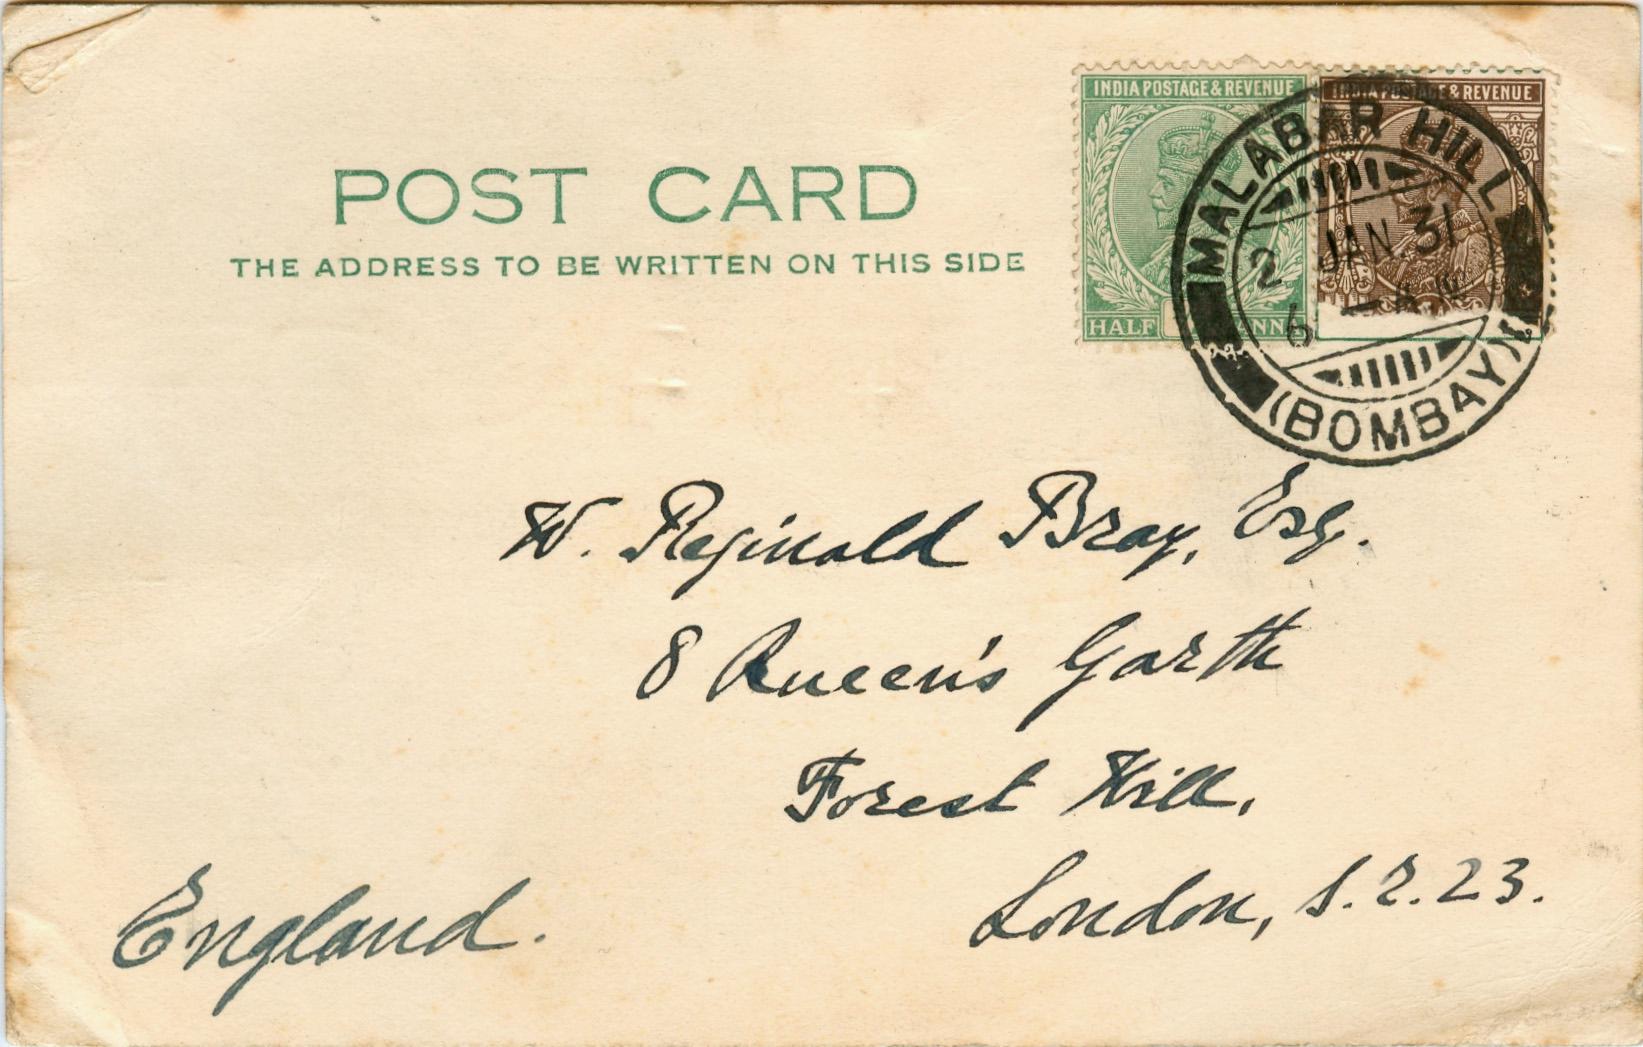 POST CARD
THE ADDRESS TO BE WRITTEN ON THIS SIDE
INDIA POSTAGE & REVENUE
HALF ANNA
INDIA POSTAGE & REVENUE
MALABAR HILL
2 JAN. 31
6
(BOMBAY)
W. Reginald Bray, Esq.
8 Queen's Garth
Forest Hill,
London, S.E.23.
England.